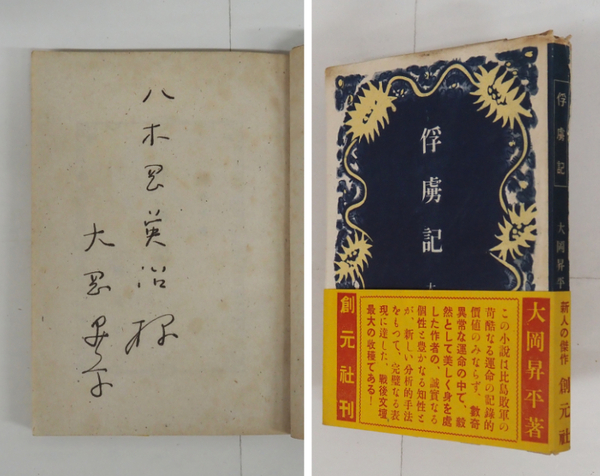 八木岡英治様
大岡昇平
俘虜記
大
大岡昇平著
この小説は比島敗軍の
苛酷なる運命の記録的
価値のみならず、數奇
異常な運命の中で、毅
然として美しく身を處
した作者の、誠實なる
個性と豊かなる知性と
が、新しい分析的手法
をもつて、完璧なる表
現に達した、戰後文壇、
最大の收穫である!
創元社刊
俘虜記
大岡昇平
新人の傑作
創元社